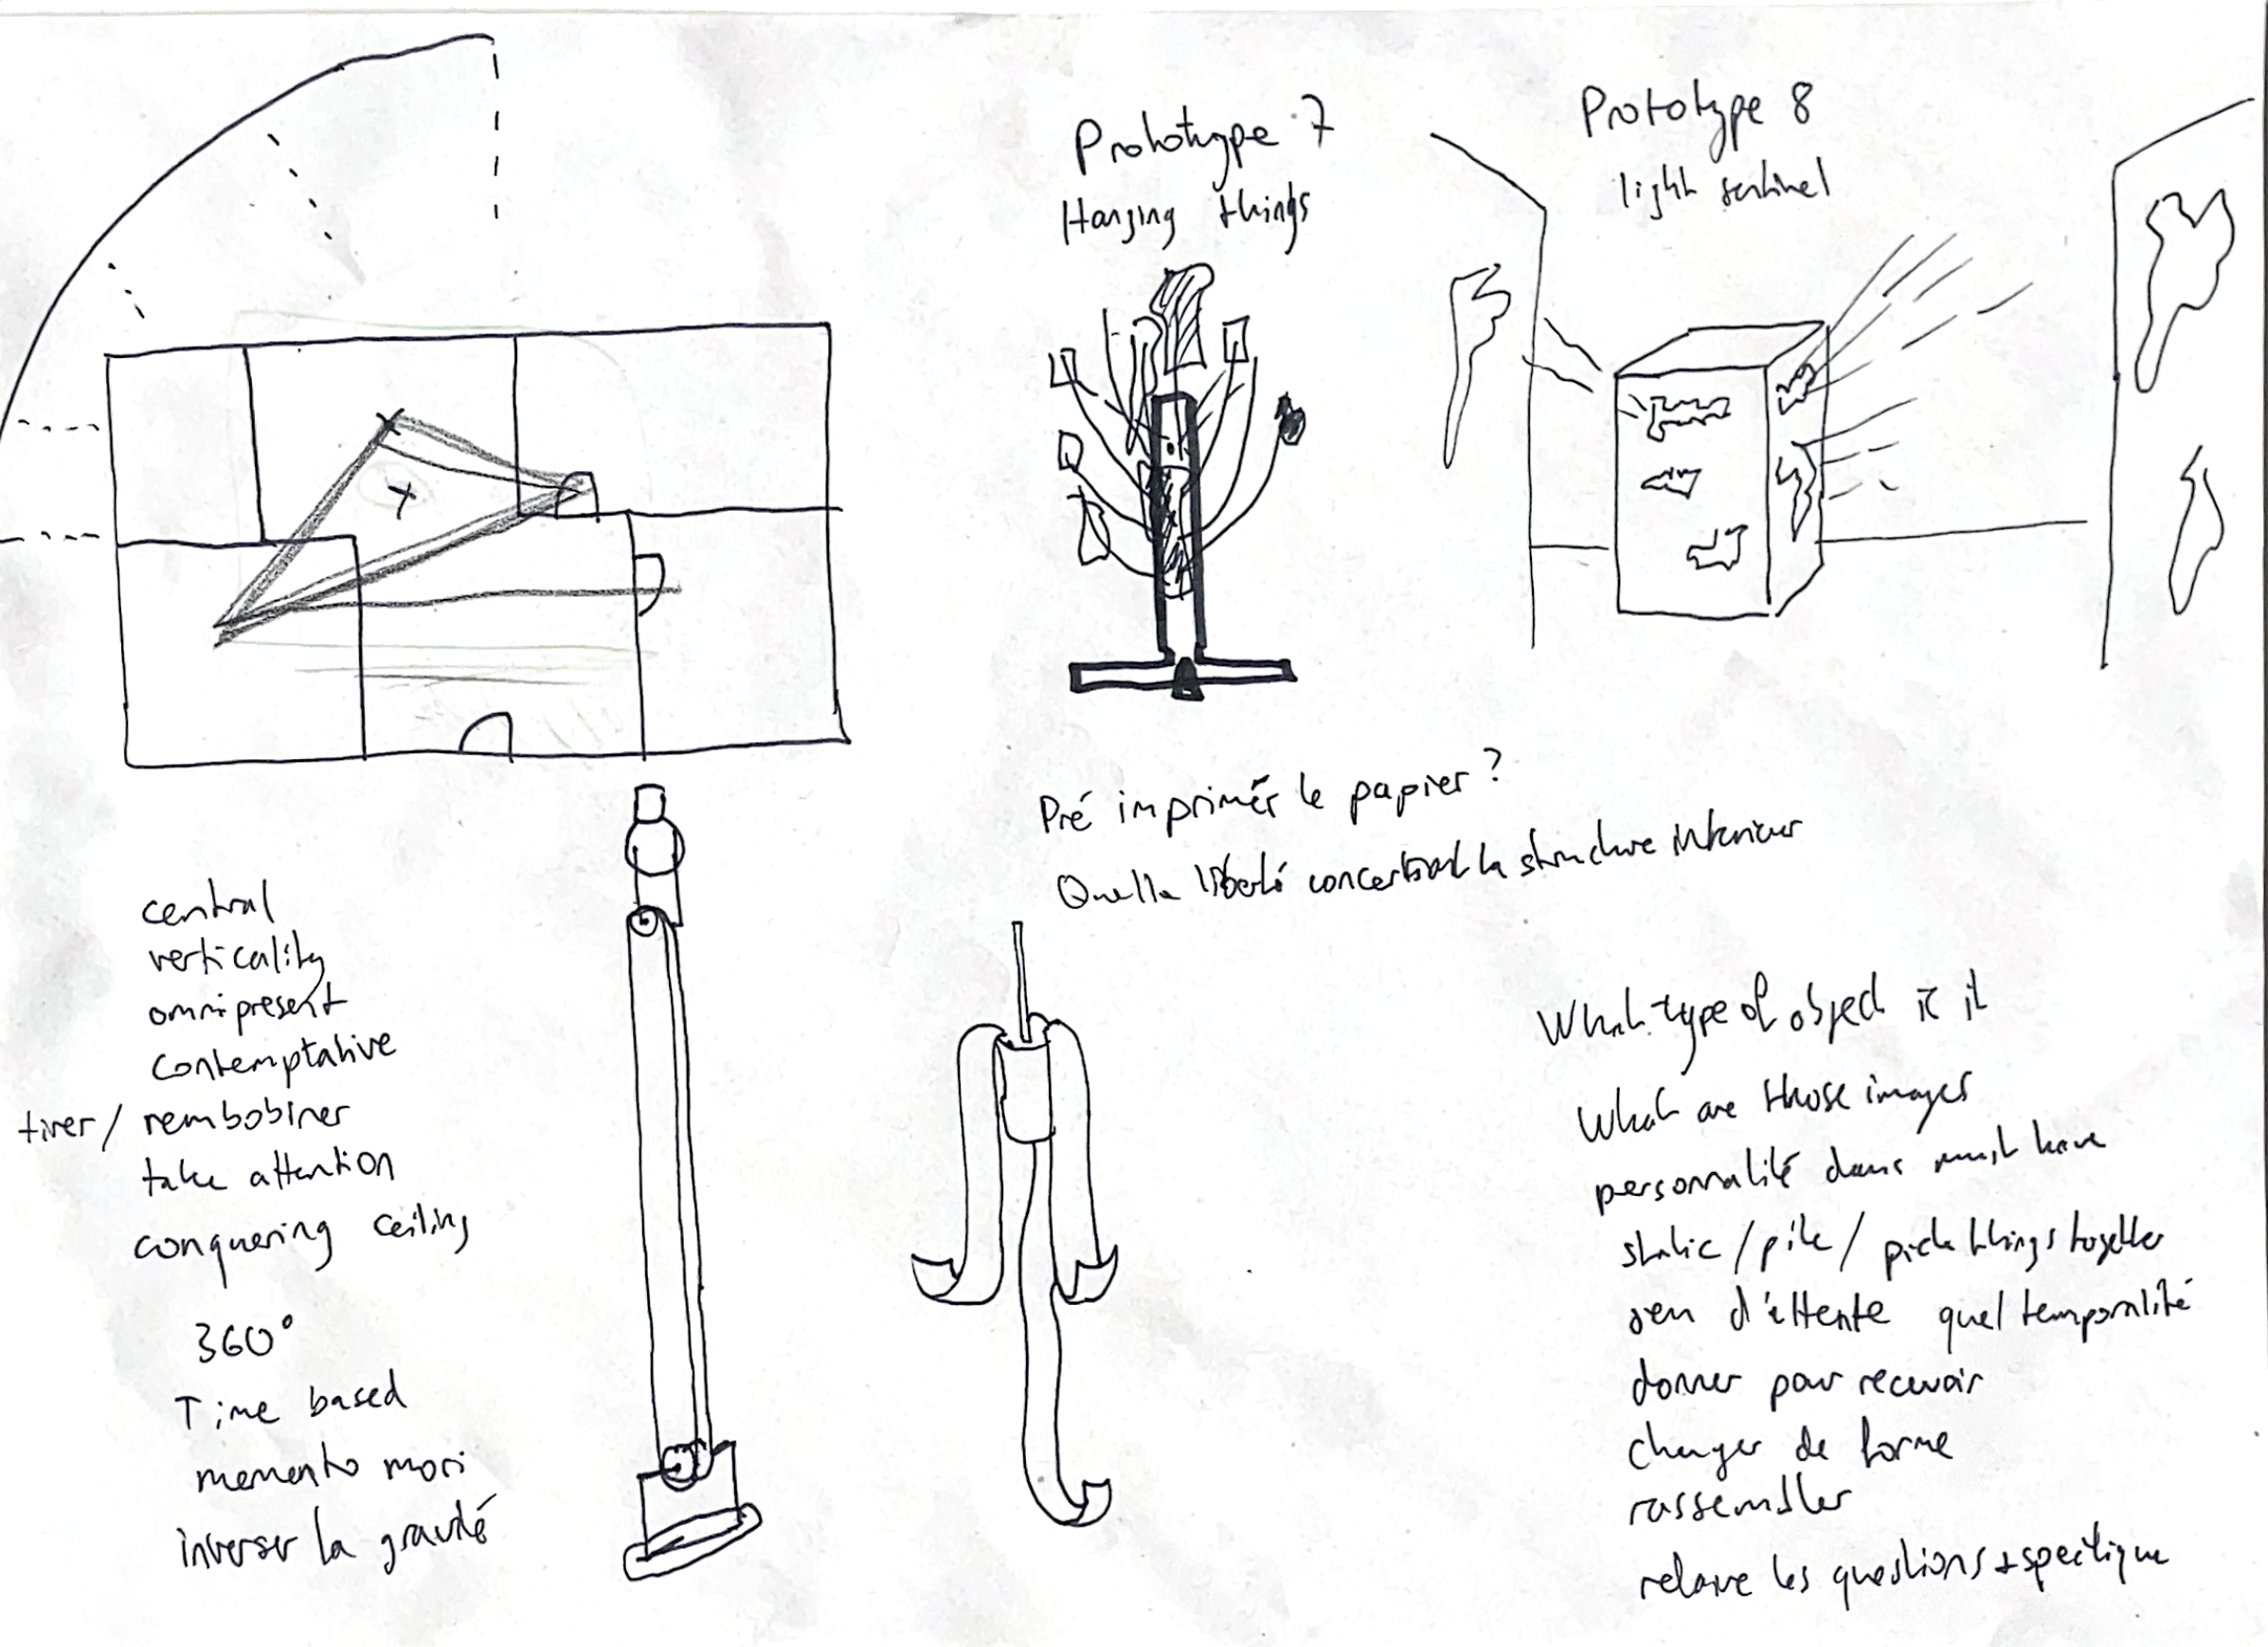 Prototype 7
Hanging things
Prototype 8
light sentinel
Pré imprimér le papier ?
Quelle liberté la structure interieur
central
verticality
omnipresent
contemptative
tirer / rembobiner
take attention
conquering ceiling
360°
Time based
memento mori
inverser la gravité
What type of object is it
What are those images
personnalité dans must have
static / pile / pick things together
d'attente quel temporalité
donner pour recevoir
changer de forme
rassembler
les questions + specifique